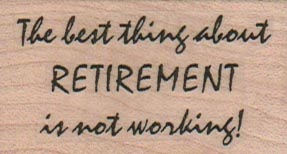 The best thing about
RETIREMENT
is not working!